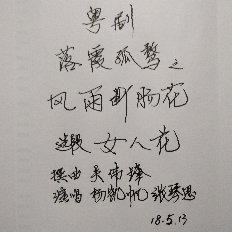 粤剧
落霞孤鹜之
风雨断肠花
选段 女人花
撰曲 吴伟锋
演唱 杨凯帆 张琴思
18-5.13